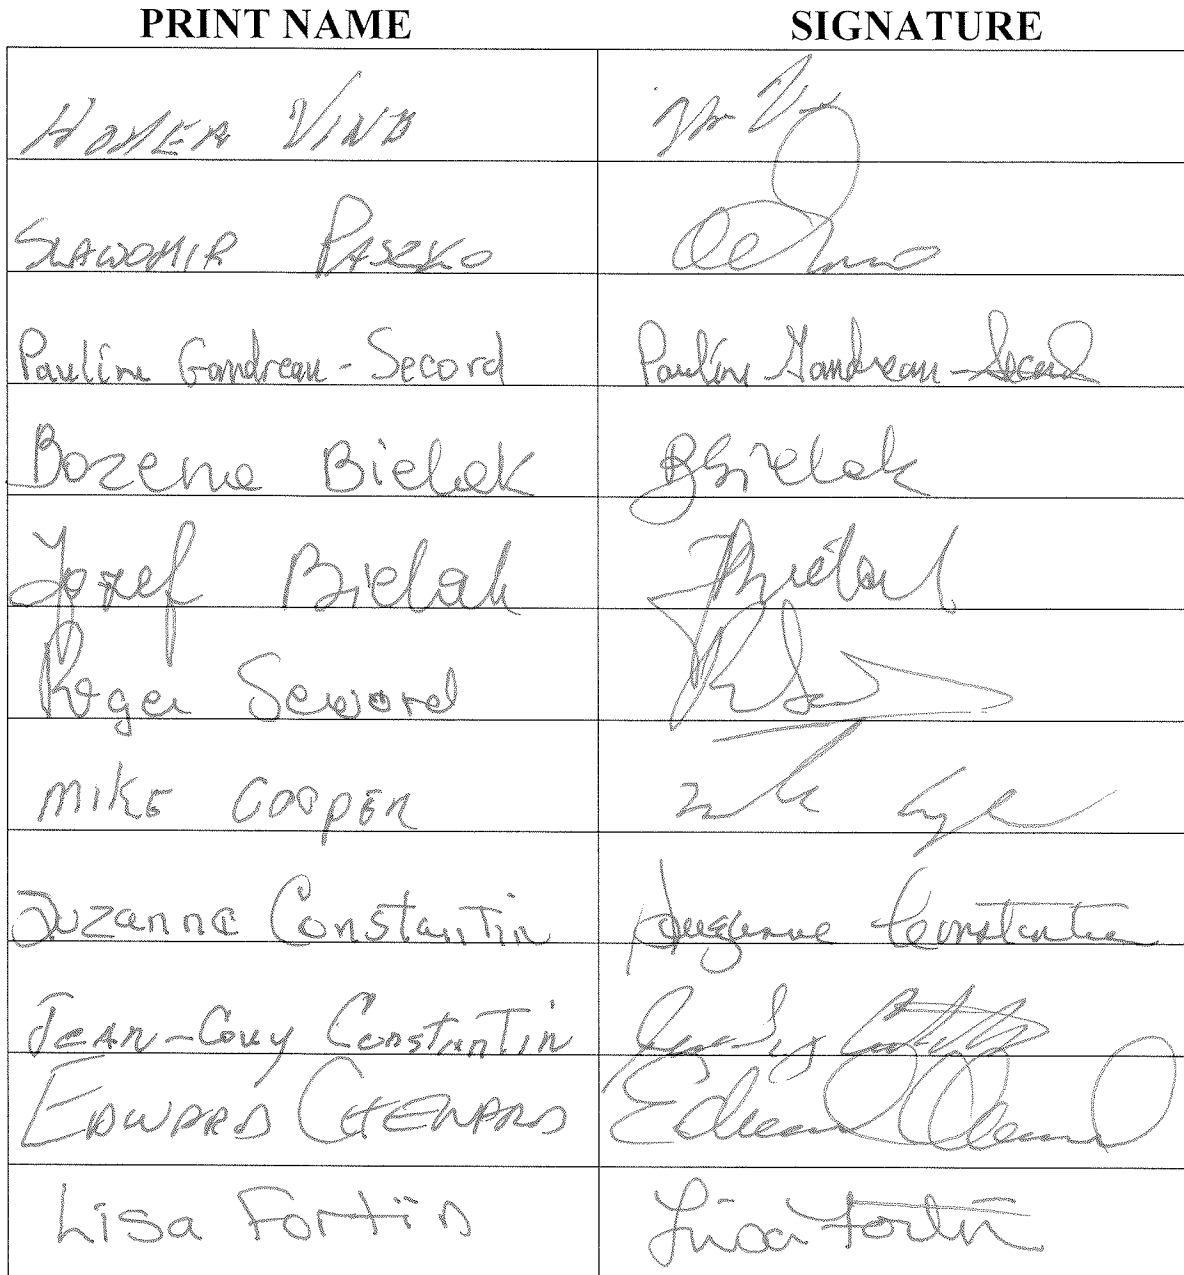 PRINT NAME SIGNATURE
HOMER VIND
SLAWOMIR PASZKO
Pauline Gaudreau-Secord Pauline Gaudreau-Secord
Bozena Bielak BBielak
Jozef Bielak JBielak
Roger Seword
MIKE COOPER
Suzanne Constantin Suzanne Constantin
JEAN-Guy Constantin
EDWARD CHENARD Edward Chenard
Lisa Fortin Lisa Fortin